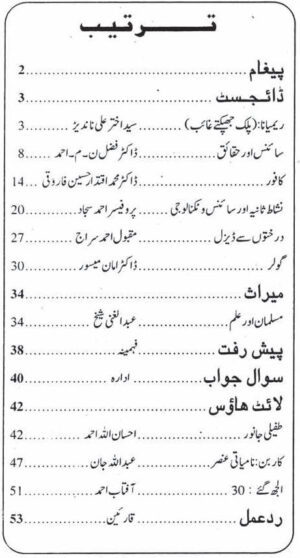 تــرتیب
پیغام ........ 2
ڈائجسٹ ........ 3
ریمیانا: (پلک جھپکتے غائب) ...... سید اختر علی ناندیڑ ...... 3
سائنس اور حقائق ...... ڈاکٹر فضل ن۔م۔احمد ...... 8
کافور ...... ڈاکٹر محمد اقتدار حسین فاروقی ...... 14
نشاط ثانیہ اور سائنس و ٹکنالوجی ...... پروفیسر احمد سجاد ...... 20
درختوں سے ڈیزل ...... مقبول احمد سراج ...... 27
گولر ...... ڈاکٹر امان میسور ...... 30
میراث ........ 34
مسلمان اور علم ...... عبدالغنی شیخ ...... 34
پیش رفت ...... فہمینہ ...... 38
سوال جواب ...... ادارہ ...... 40
لائٹ ھاؤس ........ 42
طفیلی جانور ...... احسان اللہ احمد ...... 42
کاربن: نامیاتی عنصر ...... عبداللہ جان ...... 47
الجھ گئے : 30 ...... آفتاب احمد ...... 51
ردعمل ...... قارئین ...... 53